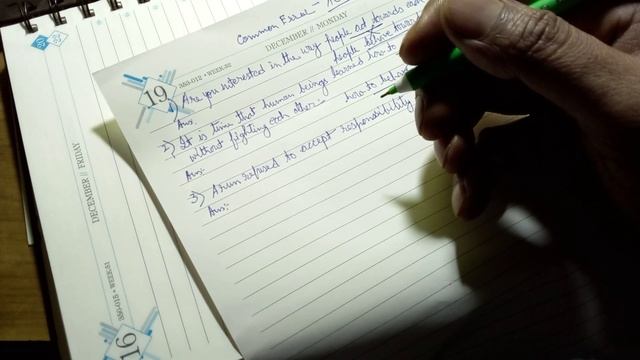 Common Error -
DECEMBER // MONDAY
353-012 • WEEK-52
19
1) Are you interested in the way people act towards each
people behave towards
Ans:
2) It is time that human beings learned how to
without fighting each other:- how to behave
Ans:-
3) Arun refused to accept responsibility
Ans:-
DECEMBER // FRIDAY
350-015 • WEEK-51
16